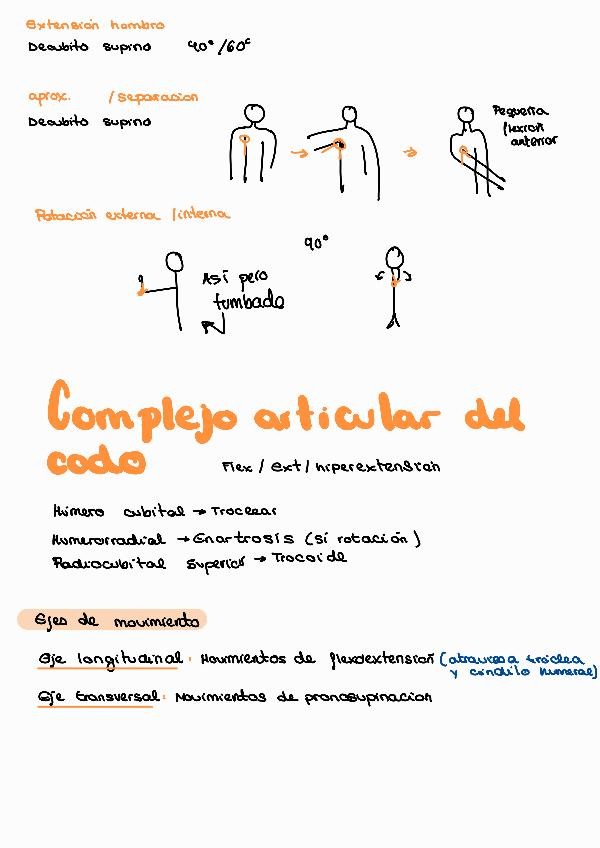 Extensión hombro
Decúbito supino 40°/60°
aprox. / separación
Decúbito supino
Pequeña
flexión
anterior
Rotación externa / interna
90°
Así pero
tumbado
Complejo articular del
codo
Flex / ext / hiperextensión
Húmero cubital → Troclear
Humerorradial → Enartrosis (sí rotación)
Radiocubital superior → Trocoide
Ejes de movimiento
Eje longitudinal: Movimientos de flexoextensión (atraviesa tróclea
y cóndilo humeral)
Eje transversal: Movimientos de pronosupinación